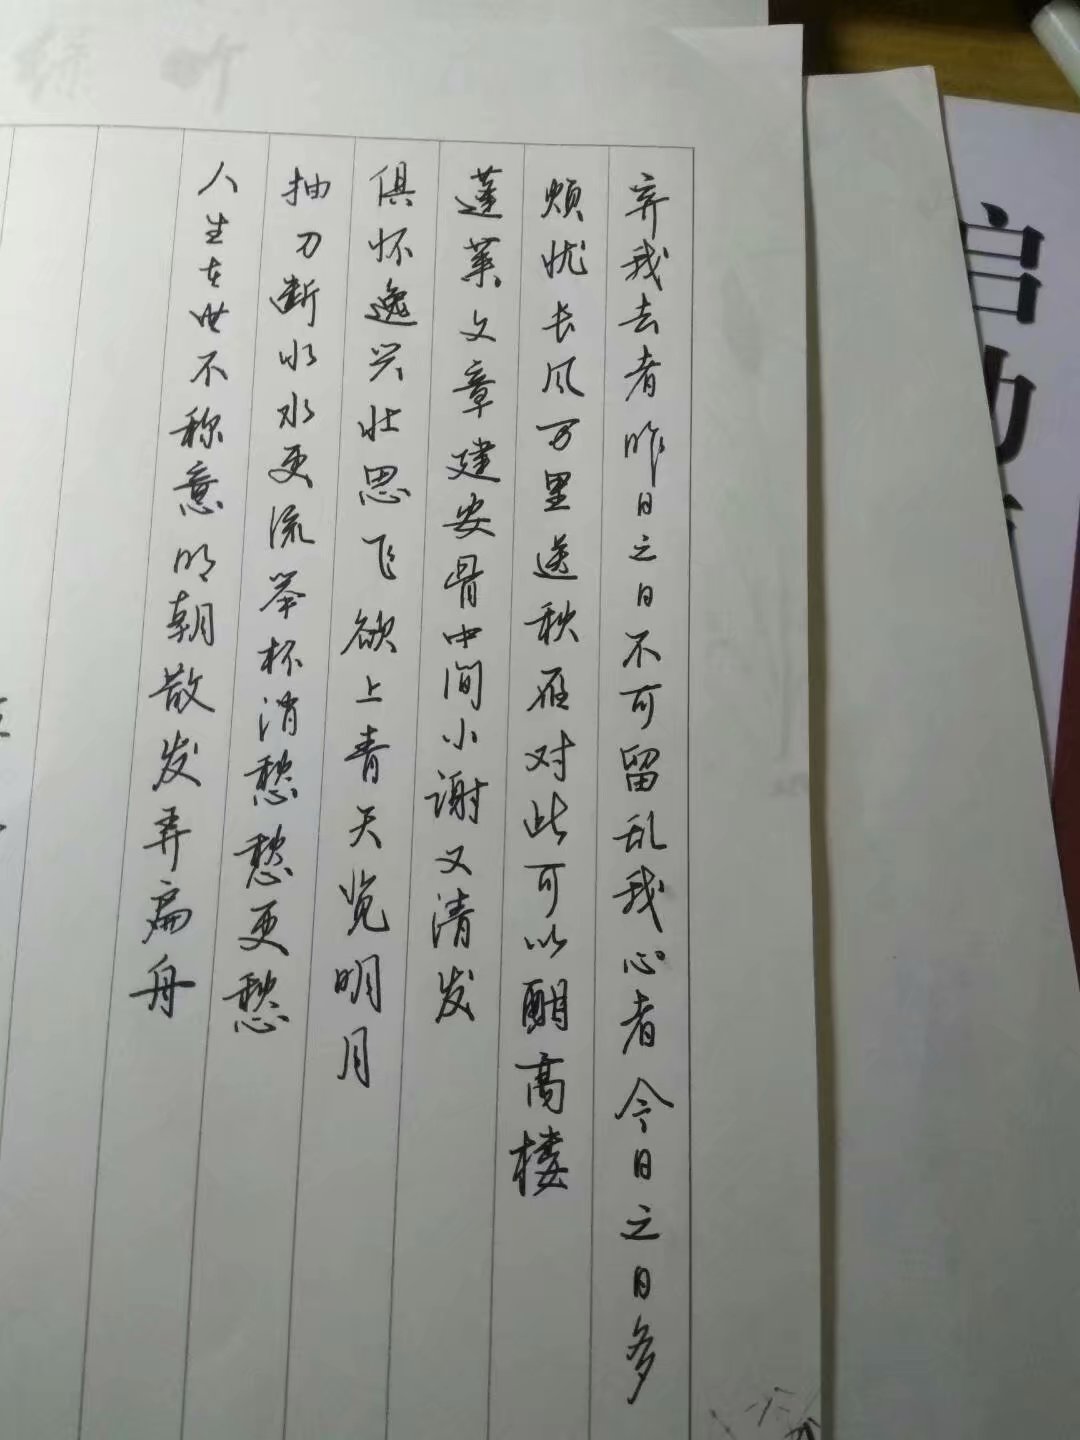 弃我去者昨日之日不可留乱我心者今日之日多
烦忧长风万里送秋雁对此可以酣高楼
蓬莱文章建安骨中间小谢又清发
俱怀逸兴壮思飞欲上青天览明月
抽刀断水水更流举杯消愁愁更愁
人生在世不称意明朝散发弄扁舟